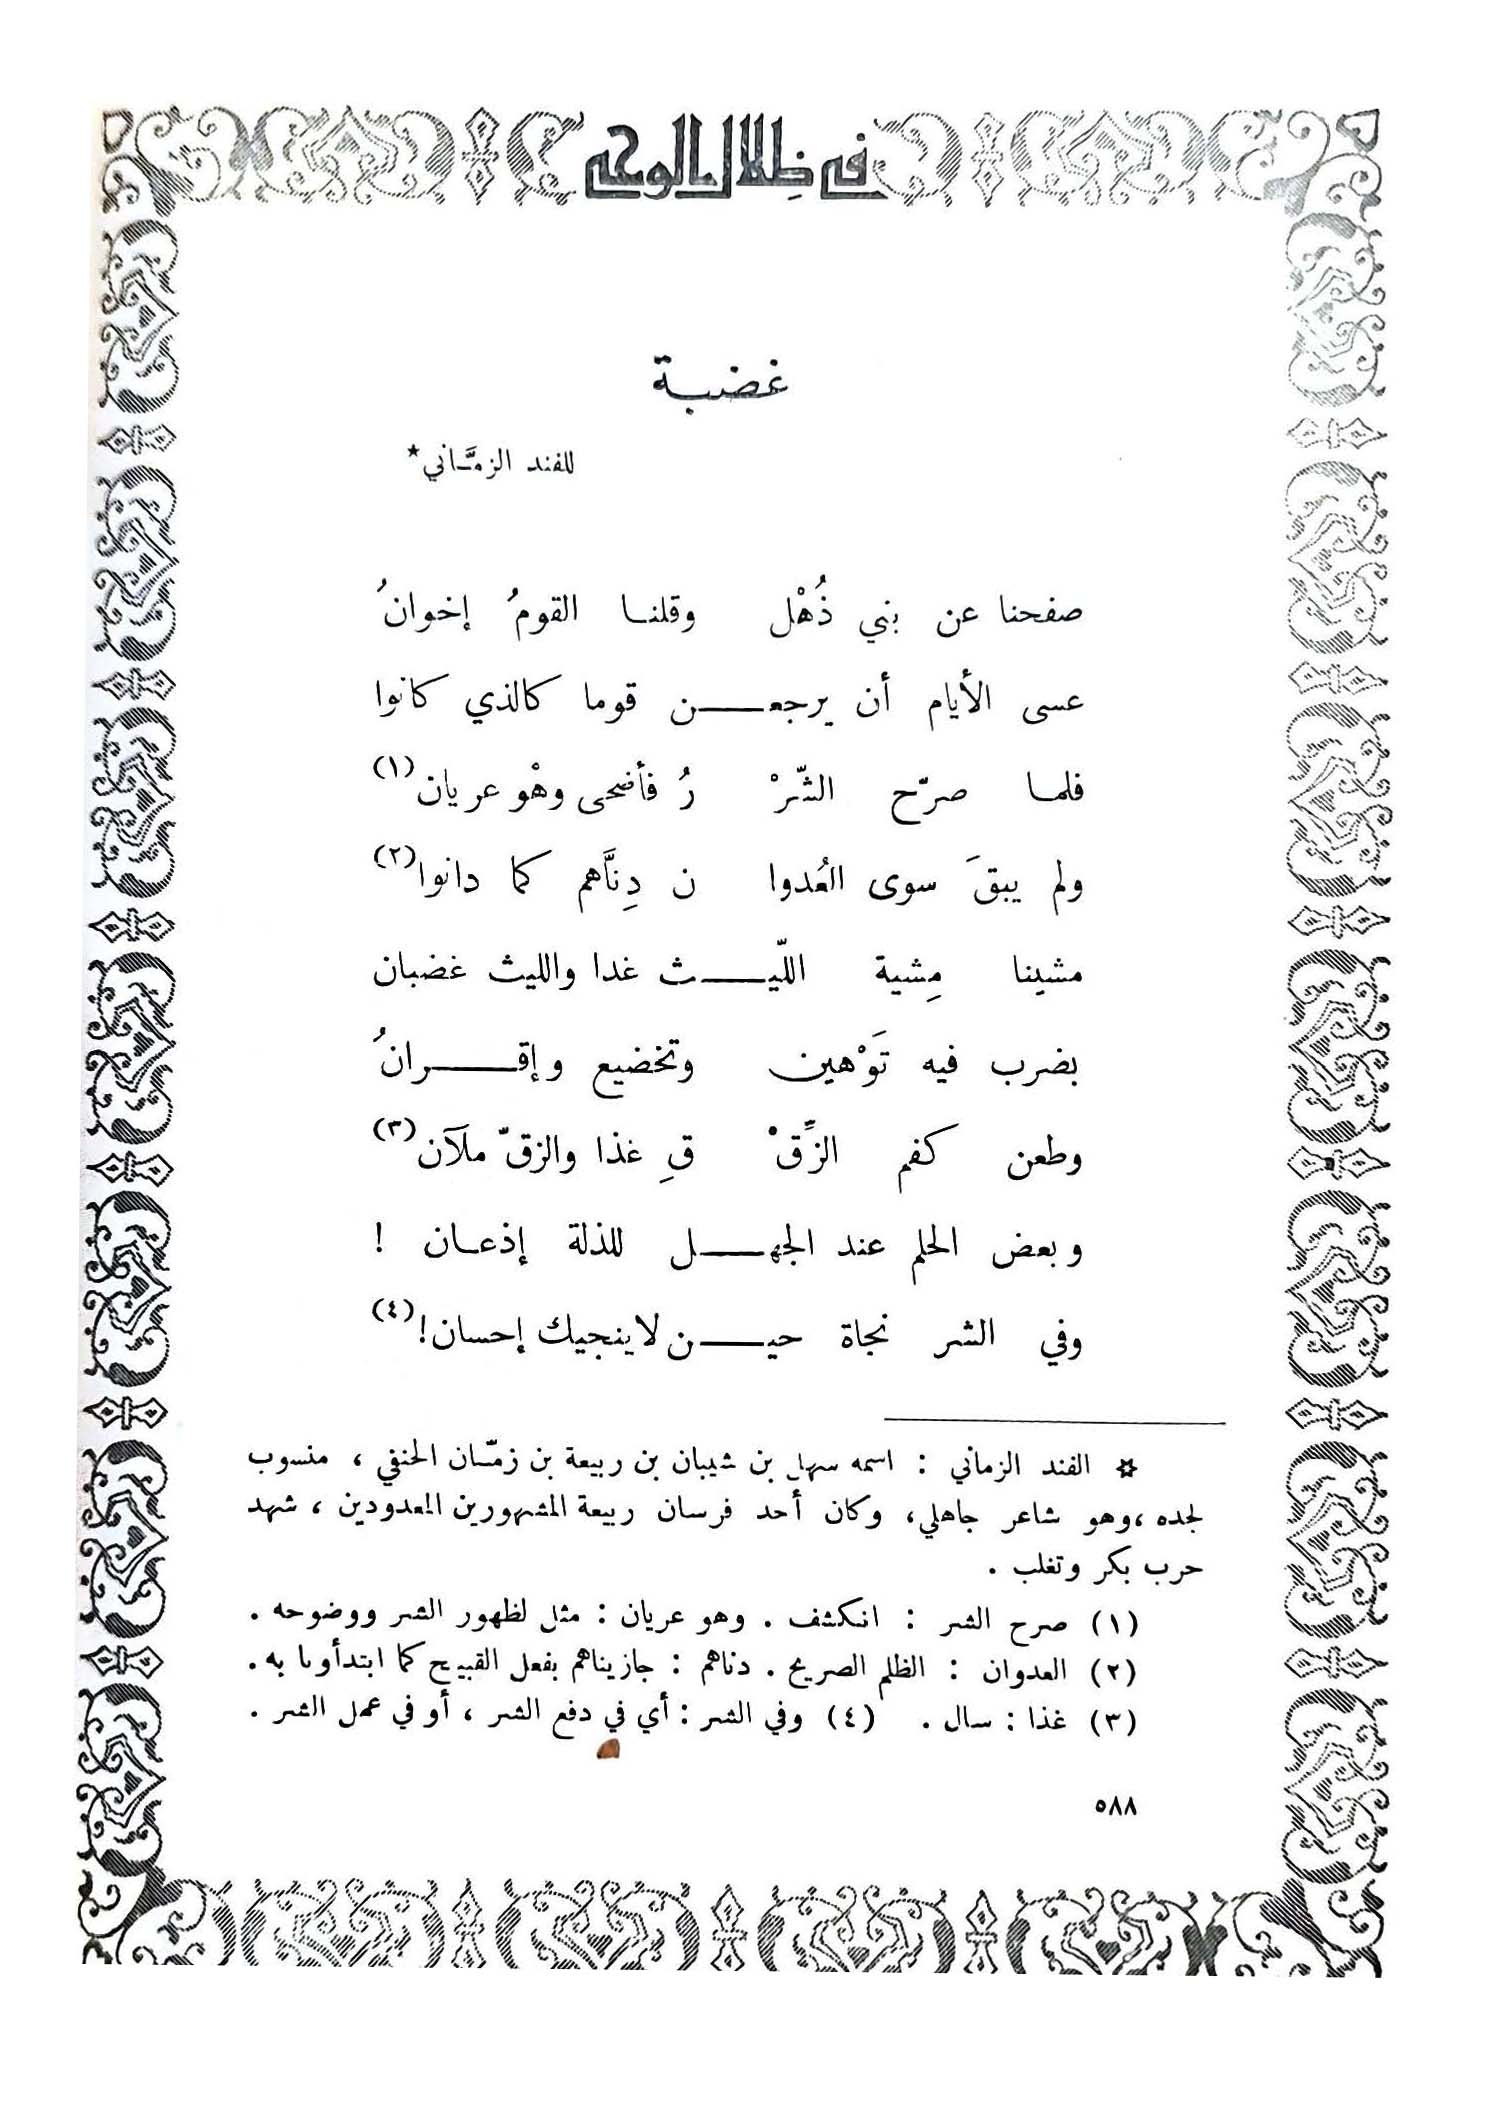 في ظلال الوحي
غضبة
للفند الزمَّاني*
صفحنا عن بني ذُهْل وقلنا القومُ إخوانُ
عسى الأيام أن يرجعن قوما كالذي كانوا
فلما صرّح الشّرْ رُ فأضحى وهْو عريان(١)
ولم يبقَ سوى العُدوا ن دِنَّاهم كما دانوا(٢)
مشينا مِشية اللّيث غدا والليث غضبان
بضرب فيه تَوْهين وتخضيع وإقرانُ
وطعن كفم الزِّقْ قِ غذا والزقّ ملآن(٣)
وبعض الحلم عند الجهل للذلة إذعان !
وفي الشر نجاة حين لا ينجيك إحسان!(٤)
* الفند الزماني : اسمه سهل بن شيبان بن ربيعة بن زمّان الحنفي ، منسوب
لجده ،وهو شاعر جاهلي، وكان أحد فرسان ربيعة المشهورين المعدودين ، شهد
حرب بكر وتغلب .
(١) صرح الشر : انكشف . وهو عريان : مثل لظهور الشر ووضوحه .
(٢) العدوان : الظلم الصريح . دناهم : جازيناهم بفعل القبيح كما ابتدأونا به .
(٣) غذا : سال . (٤) وفي الشر : أي في دفع الشر ، أو في عمل الشر .
٥٨٨